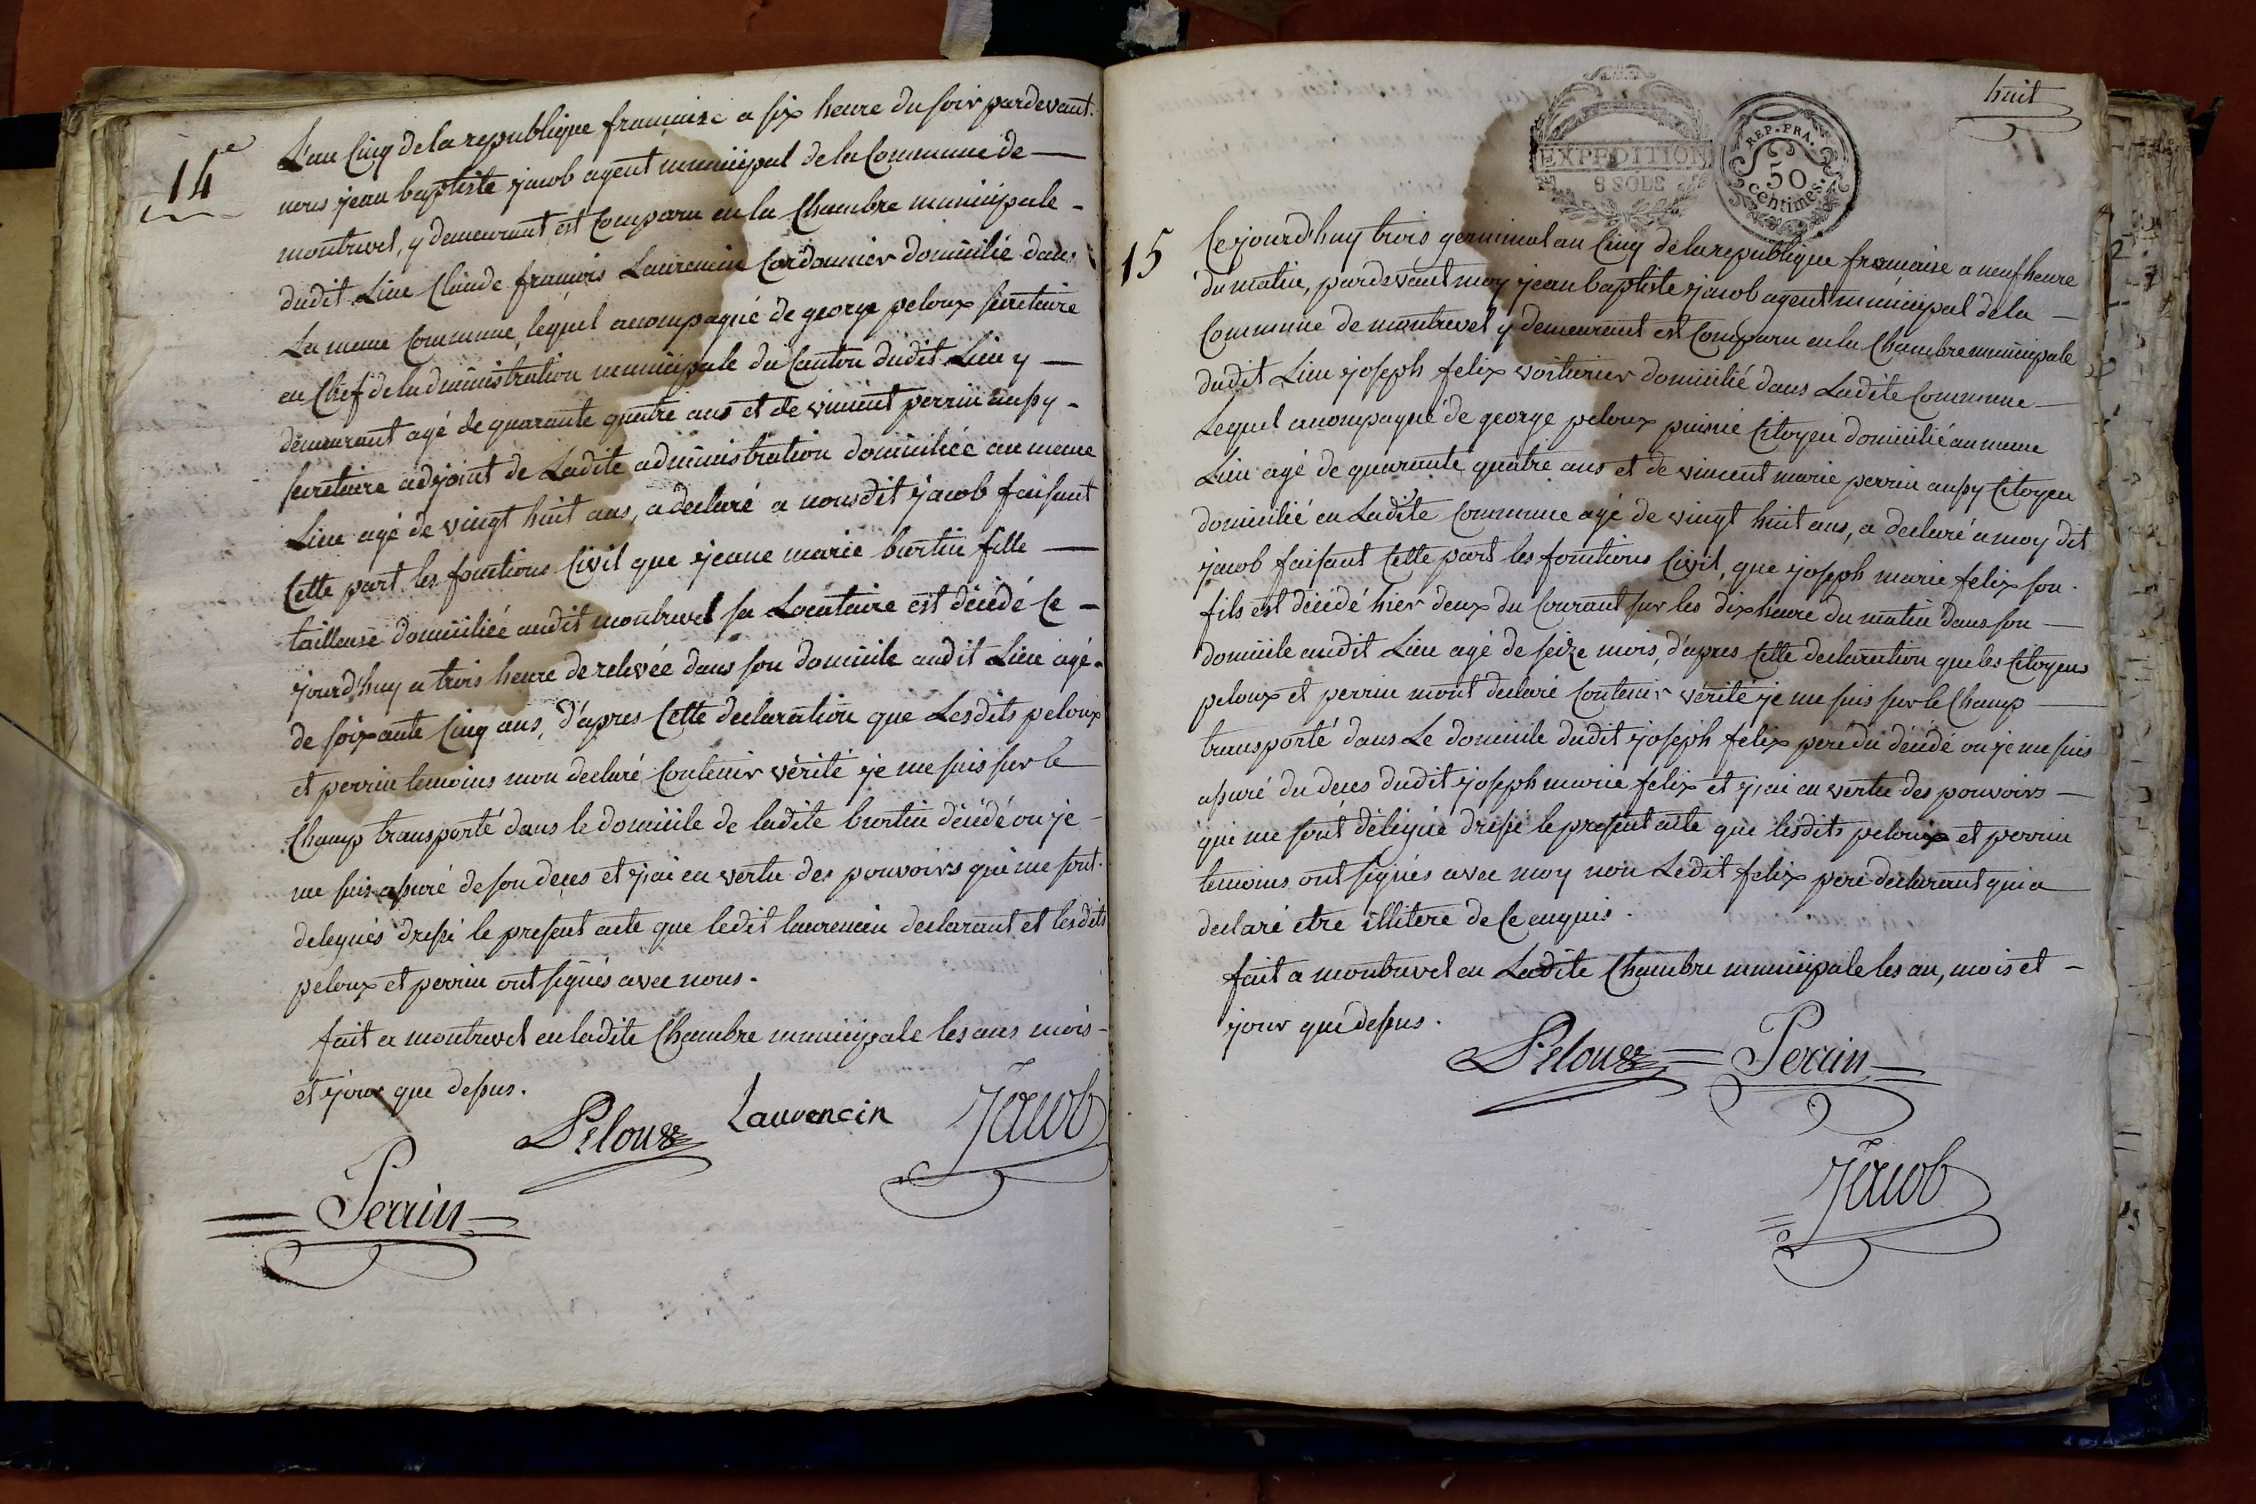 14e
L'an Cinq de la republique francaise a six heure du soir pardevant
nous jean baptiste jacob agent municipal de la Commune de
montrevel, y demeurant est Comparu en la Chambre municipale
dudit Lieu Claude francois Laurencin Cordonnier domicilié dans
La meme Commune, lequel acompagné de george peloux secretaire
en Chef de ladministration municipale du Canton dudit Lieu y
demeurant agé de quarante quatre ans et de vincent perrin aussy
secretaire adjoint de Ladite administration domiciliée au meme
Lieu agé de vingt huit ans, a declaré a nousdit jacob faisant
Cette part les fonctions Civil que jeane marie burtin fille
tailleuse domiciliée audit montrevel sa Locataire est décédé Ce
jourd'huy a trois heure de relevée dans son domicile audit Lieu agé
de soixante Cinq ans, d'apres Cette declaration que Lesdits peloux
et perrin temoins mon declaré Contenir vérité je me suis sur le
Champ transporté dans le domicile de ladite burtin décédé ou je
me suis assuré de son deces et j'ai en vertu des pouvoirs qui me sont
delegués dressé le present acte que ledit laurencin declarant et lesdits
peloux et perrin ont signés avec nous.
fait a montrevel en ladite Chambre municipale les ans mois
et jour que dessus.
Peloux Laurencin Jacob
Perrin
huit
EXPEDITION
8 SOLS
REP. FRA.
50
centimes.
15
Ce jourd'huy trois germinal an Cinq de la republique francaise a neuf heure
du matin, pardevant moy jean baptiste jacob agent municipal de la
Commune de montrevel y demeurant est Comparu en la Chambre municipale
dudit Lieu joseph felix voiturier domicilié dans Ladite Commune
Lequel acompagné de george peloux puisné Citoyen domicilié au meme
Lieu agé de quarante quatre ans et de vincent marie perrin aussy Citoyen
domicilié en Ladite Commune agé de vingt huit ans, a declaré a moy dit
jacob faisant Cette part les fonctions Civil, que joseph marie felix son
fils est décédé hier deux du Courant sur les dix heure du matin dans son
domicile audit Lieu agé de seize mois, d'apres Cette declaration que les Citoyens
peloux et perrin mont declaré Contenir vérité je me suis sur le Champ
transporté dans Le domicile dudit joseph felix pere du décédé ou je me suis
assuré du deces dudit joseph marie felix et j'ai en vertu des pouvoirs
qui me sont délégué dressé le present acte que lesdits peloux et perrin
temoins ont signés avec moy non Ledit felix pere declarant qui a
declaré etre illitere de Ce enquis.
fait a montrevel en Ladite Chambre municipale les an, mois et
jour que dessus.
Peloux Perrin
Jacob